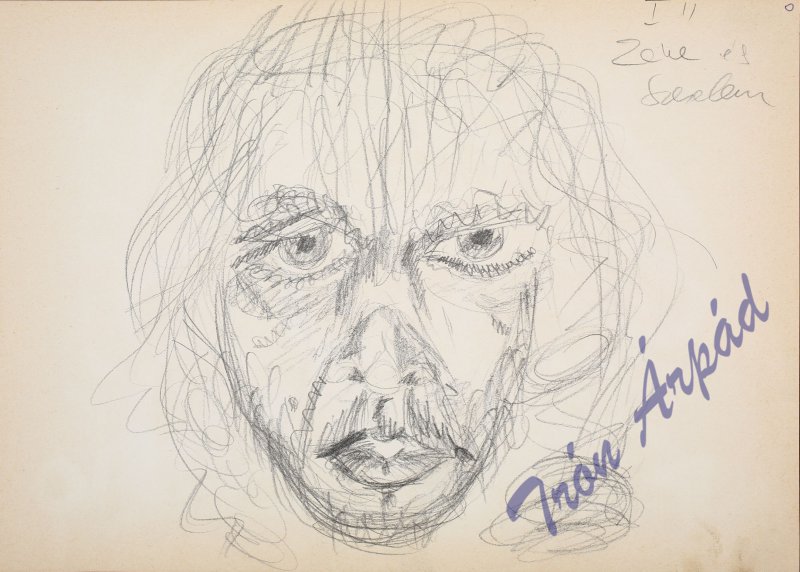 I"
Zene és
Szerelem
Irón Árpád